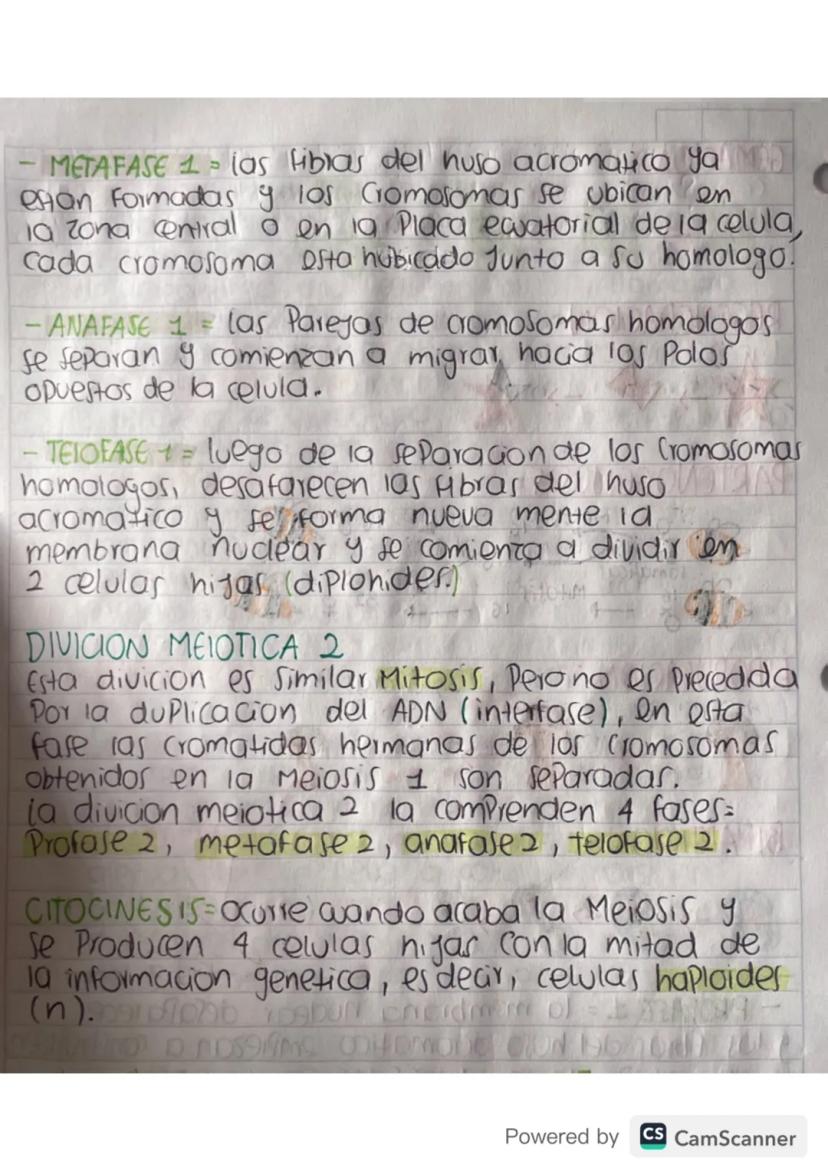 - METAFASE 1 = las fibras del huso acromatico ya
estan formadas y los cromosomas se ubican en
la zona central o en la placa ecuatorial de la celula,
cada cromosoma esta hubicado junto a su homologo.
- ANAFASE 1 = las parejas de cromosomas homologos
se separan y comienzan a migrar hacia los polos
opuestos de la celula.
- TELOFASE 1 = luego de la separacion de los cromosomas
homologos, desafarecen las fibras del huso
acromatico y se forma nueva mente la
membrana nuclear y se comienza a dividir en
2 celulas hijas (diplohides.)
DIVICION MEIOTICA 2
Esta divicion es similar Mitosis, pero no es precedida
por la duplicacion del ADN (interfase), en esta
fase las cromatidas hermanas de los cromosomas
obtenidos en la Meiosis 1 son separadas.
la divicion meiotica 2 la comprenden 4 fases=
Profase 2, metafase 2, anafase 2, telofase 2.
CITOCINESIS= ocurre cuando acaba la Meiosis y
se producen 4 celulas hijas con la mitad de
la informacion genetica, es decir, celulas haploides
(n).
Powered by CS CamScanner